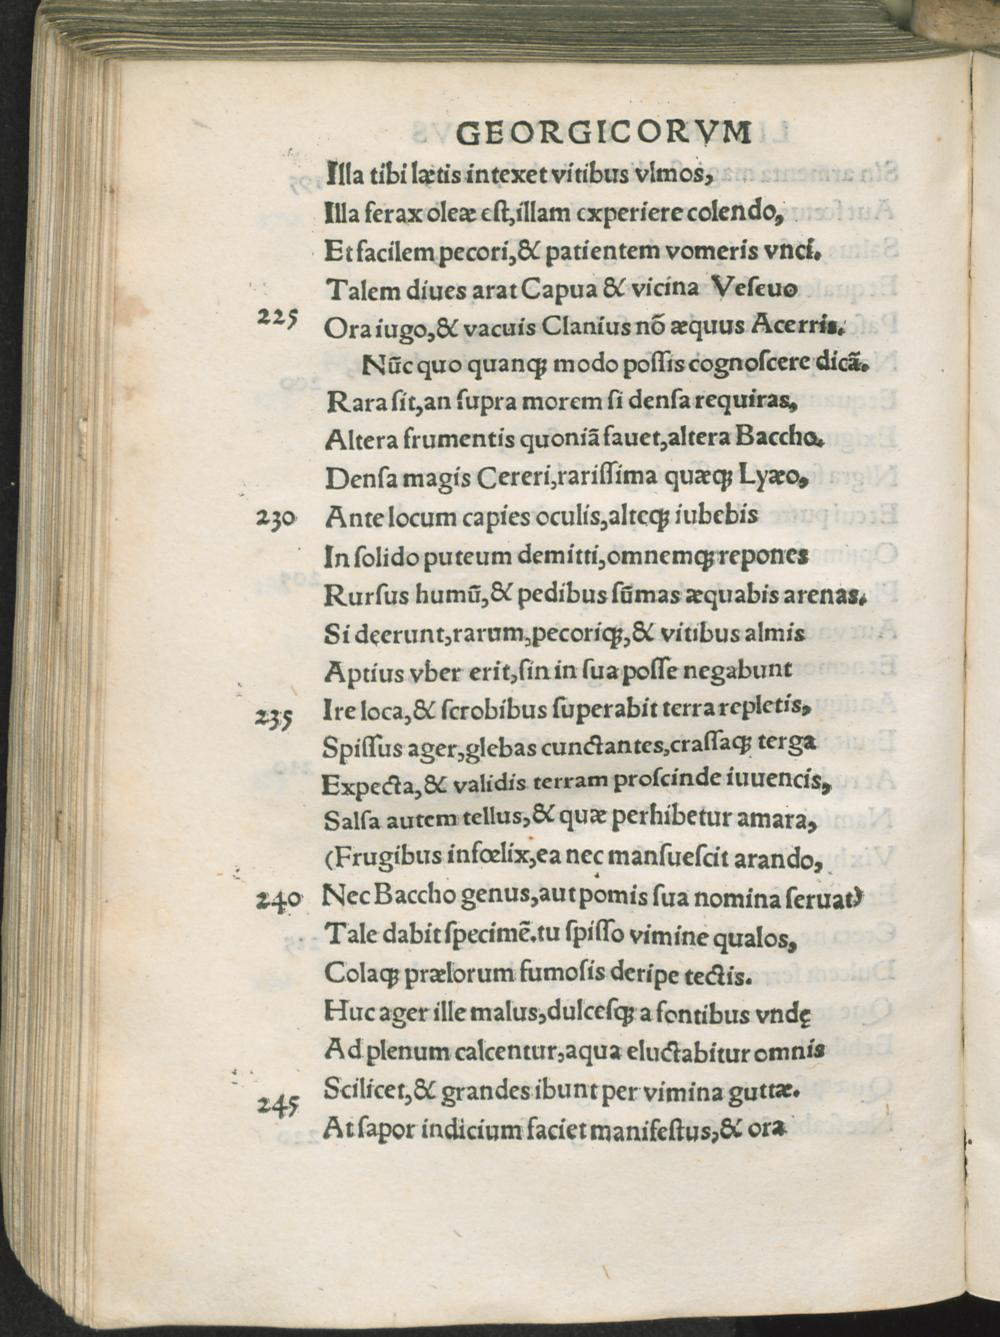 GEORGICORVM
Illa tibi lætis intexet vitibus vlmos,
Illa ferax oleæ eſt,illam experiere colendo,
Et facilem pecori,& patientem vomeris vnci.
Talem diues arat Capua & vicina Veſeuo
225 Ora iugo,& vacuis Clanius nõ æquus Acerris.
Nũc quo quanqꝫ modo poſſis cognoſcere dicã.
Rara ſit,an ſupra morem ſi denſa requiras,
Altera frumentis quoniã fauet,altera Baccho.
Denſa magis Cereri,rariſſima quæqꝫ Lyæo,
230 Ante locum capies oculis,alteqꝫ iubebis
In ſolido puteum demitti,omnemqꝫ repones
Rurſus humũ,& pedibus ſũmas æquabis arenas.
Si dęerunt,rarum,pecoriqꝫ,& vitibus almis
Aptius vber erit,ſin in ſua poſſe negabunt
235 Ire loca,& ſcrobibus ſuperabit terra repletis,
Spiſſus ager,glebas cunctantes,craſſaqꝫ terga
Expecta,& validis terram proſcinde iuuencis,
Salſa autem tellus,& quæ perhibetur amara,
(Frugibus infœlix,ea nec manſueſcit arando,
240 Nec Baccho genus,aut pomis ſua nomina ſeruat)
Tale dabit ſpecimẽ.tu ſpiſſo vimine qualos,
Colaqꝫ prælorum fumoſis deripe tectis.
Huc ager ille malus,dulceſqꝫ a fontibus vndę
Ad plenum calcentur,aqua eluctabitur omnis
245 Scilicet,& grandes ibunt per vimina guttæ.
At ſapor indicium faciet manifeſtus,& ora